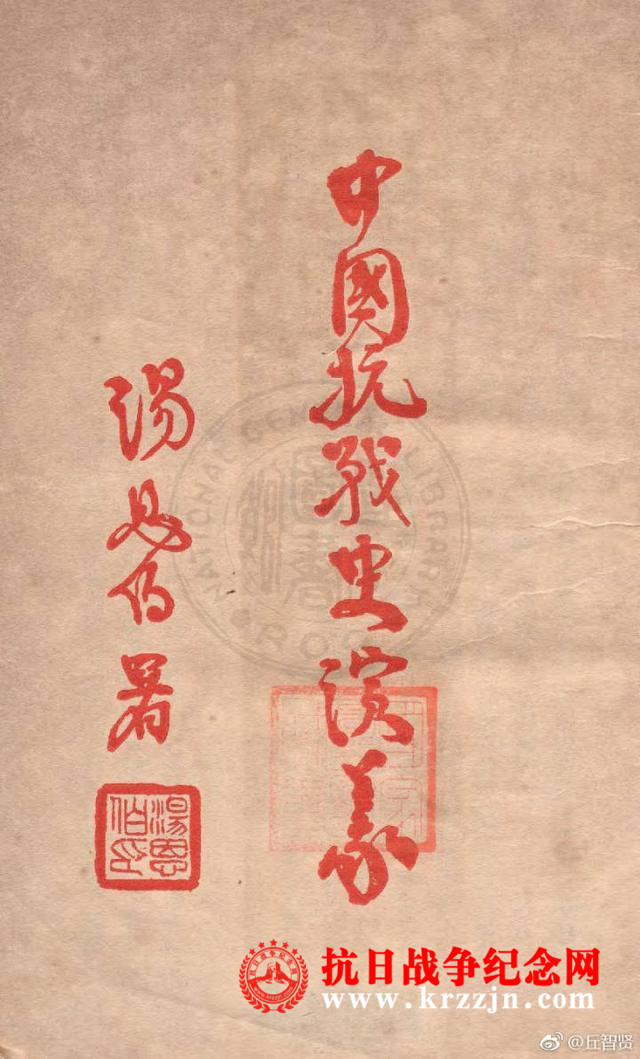 中國抗戰史演義
湯恩伯署
湯恩伯印
NATIONAL CENTRAL LIBRARY
R.O.C.
抗日战争纪念网
www.krzzjn.com
@丘智贤